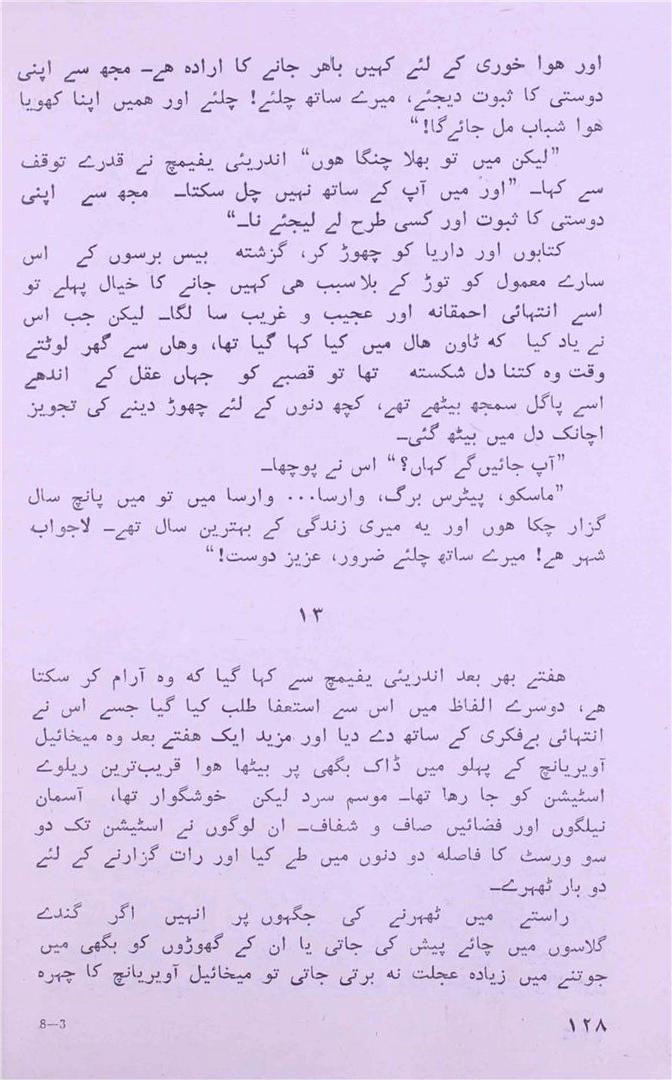 اور ہوا خوری کے لئے کہیں باہر جانے کا ارادہ ہے۔ مجھ سے اپنی
دوستی کا ثبوت دیجئے، میرے ساتھ چلئے! چلئے اور ہمیں اپنا کھویا
ہوا شباب مل جائےگا!“
”لیکن میں تو بھلا چنگا ہوں“ اندریئی یفیمچ نے قدرے توقف
سے کہا۔ ”اور میں آپ کے ساتھ نہیں چل سکتا۔ مجھ سے اپنی
دوستی کا ثبوت اور کسی طرح لے لیجئے نا۔“
کتابوں اور داریا کو چھوڑ کر، گزشتہ بیس برسوں کے اس
سارے معمول کو توڑ کے بلاسبب ہی کہیں جانے کا خیال پہلے تو
اسے انتہائی احمقانہ اور عجیب و غریب سا لگا۔ لیکن جب اس
نے یاد کیا کہ ٹاون ہال میں کیا کہا گیا تھا، وہاں سے گھر لوٹتے
وقت وہ کتنا دل شکستہ تھا تو قصبے کو جہاں عقل کے اندھے
اسے پاگل سمجھ بیٹھے تھے، کچھ دنوں کے لئے چھوڑ دینے کی تجویز
اچانک دل میں بیٹھ گئی۔
”آپ جائیں گے کہاں؟“ اس نے پوچھا۔
”ماسکو، پیٹرس برگ، وارسا... وارسا میں تو میں پانچ سال
گزار چکا ہوں اور یہ میری زندگی کے بہترین سال تھے۔ لاجواب
شہر ہے! میرے ساتھ چلئے ضرور، عزیز دوست!“
۱۳
ہفتے بھر بعد اندریئی یفیمچ سے کہا گیا کہ وہ آرام کر سکتا
ہے، دوسرے الفاظ میں اس سے استعفا طلب کیا گیا جسے اس نے
انتہائی بےفکری کے ساتھ دے دیا اور مزید ایک ہفتے بعد وہ میخائیل
آویریانچ کے پہلو میں ڈاک بگھی پر بیٹھا ہوا قریب‌ترین ریلوے
اسٹیشن کو جا رہا تھا۔ موسم سرد لیکن خوشگوار تھا، آسمان
نیلگوں اور فضائیں صاف و شفاف۔ ان لوگوں نے اسٹیشن تک دو
سو ورسٹ کا فاصلہ دو دنوں میں طے کیا اور رات گزارنے کے لئے
دو بار ٹھہرے۔
راستے میں ٹھہرنے کی جگہوں پر انہیں اگر گندے
گلاسوں میں چائے پیش کی جاتی یا ان کے گھوڑوں کو بگھی میں
جوتنے میں زیادہ عجلت نہ برتی جاتی تو میخائیل آویریانچ کا چہرہ
۱۲۸
8—3